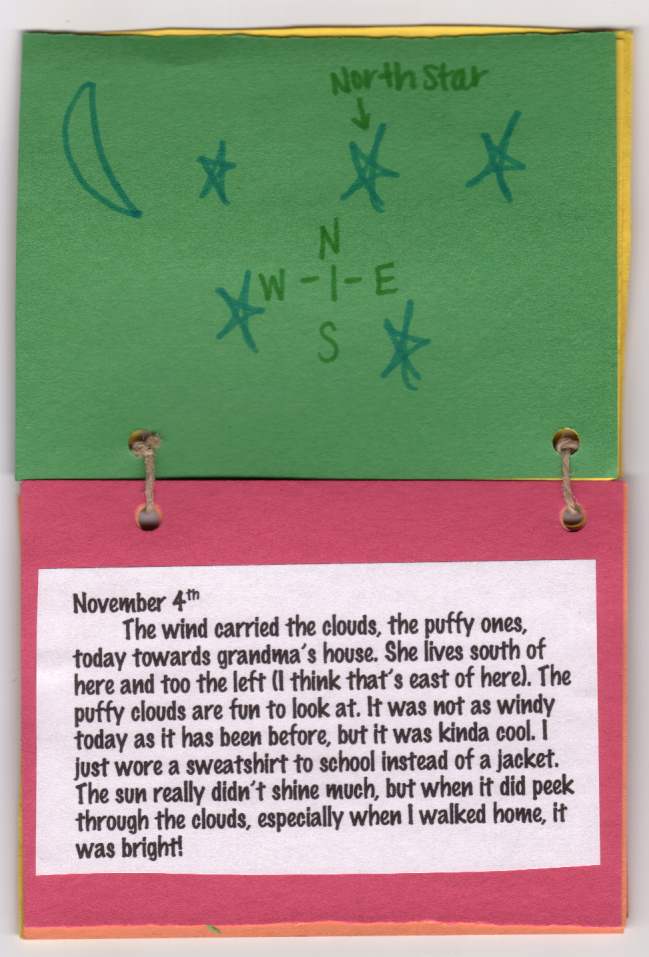 North Star
N
W - | - E
S
November 4th
The wind carried the clouds, the puffy ones,
today towards grandma's house. She lives south of
here and too the left (I think that's east of here). The
puffy clouds are fun to look at. It was not as windy
today as it has been before, but it was kinda cool. I
just wore a sweatshirt to school instead of a jacket.
The sun really didn't shine much, but when it did peek
through the clouds, especially when I walked home, it
was bright!